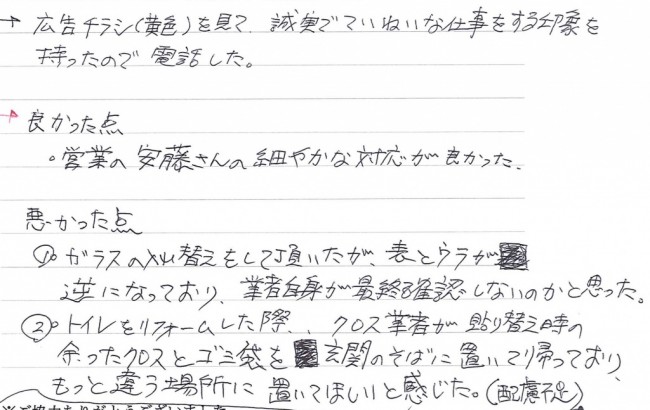 → 広告チラシ(黄色)を見て、誠実でていねいな仕事をする印象を
持ったので電話した。
→ 良かった点
・営業の安藤さんの細やかな対応が良かった。
悪かった点
①・ガラスの入れ替えをして頂いたが、表とウラが
逆になっており、業者自身が最終確認しないのかと思った。
②・トイレをリフォームした際、クロス業者が貼り替え時の
余ったクロスとゴミ袋を玄関のそばに置いて帰っており、
もっと違う場所に置いてほしいと感じた。(配慮不足)